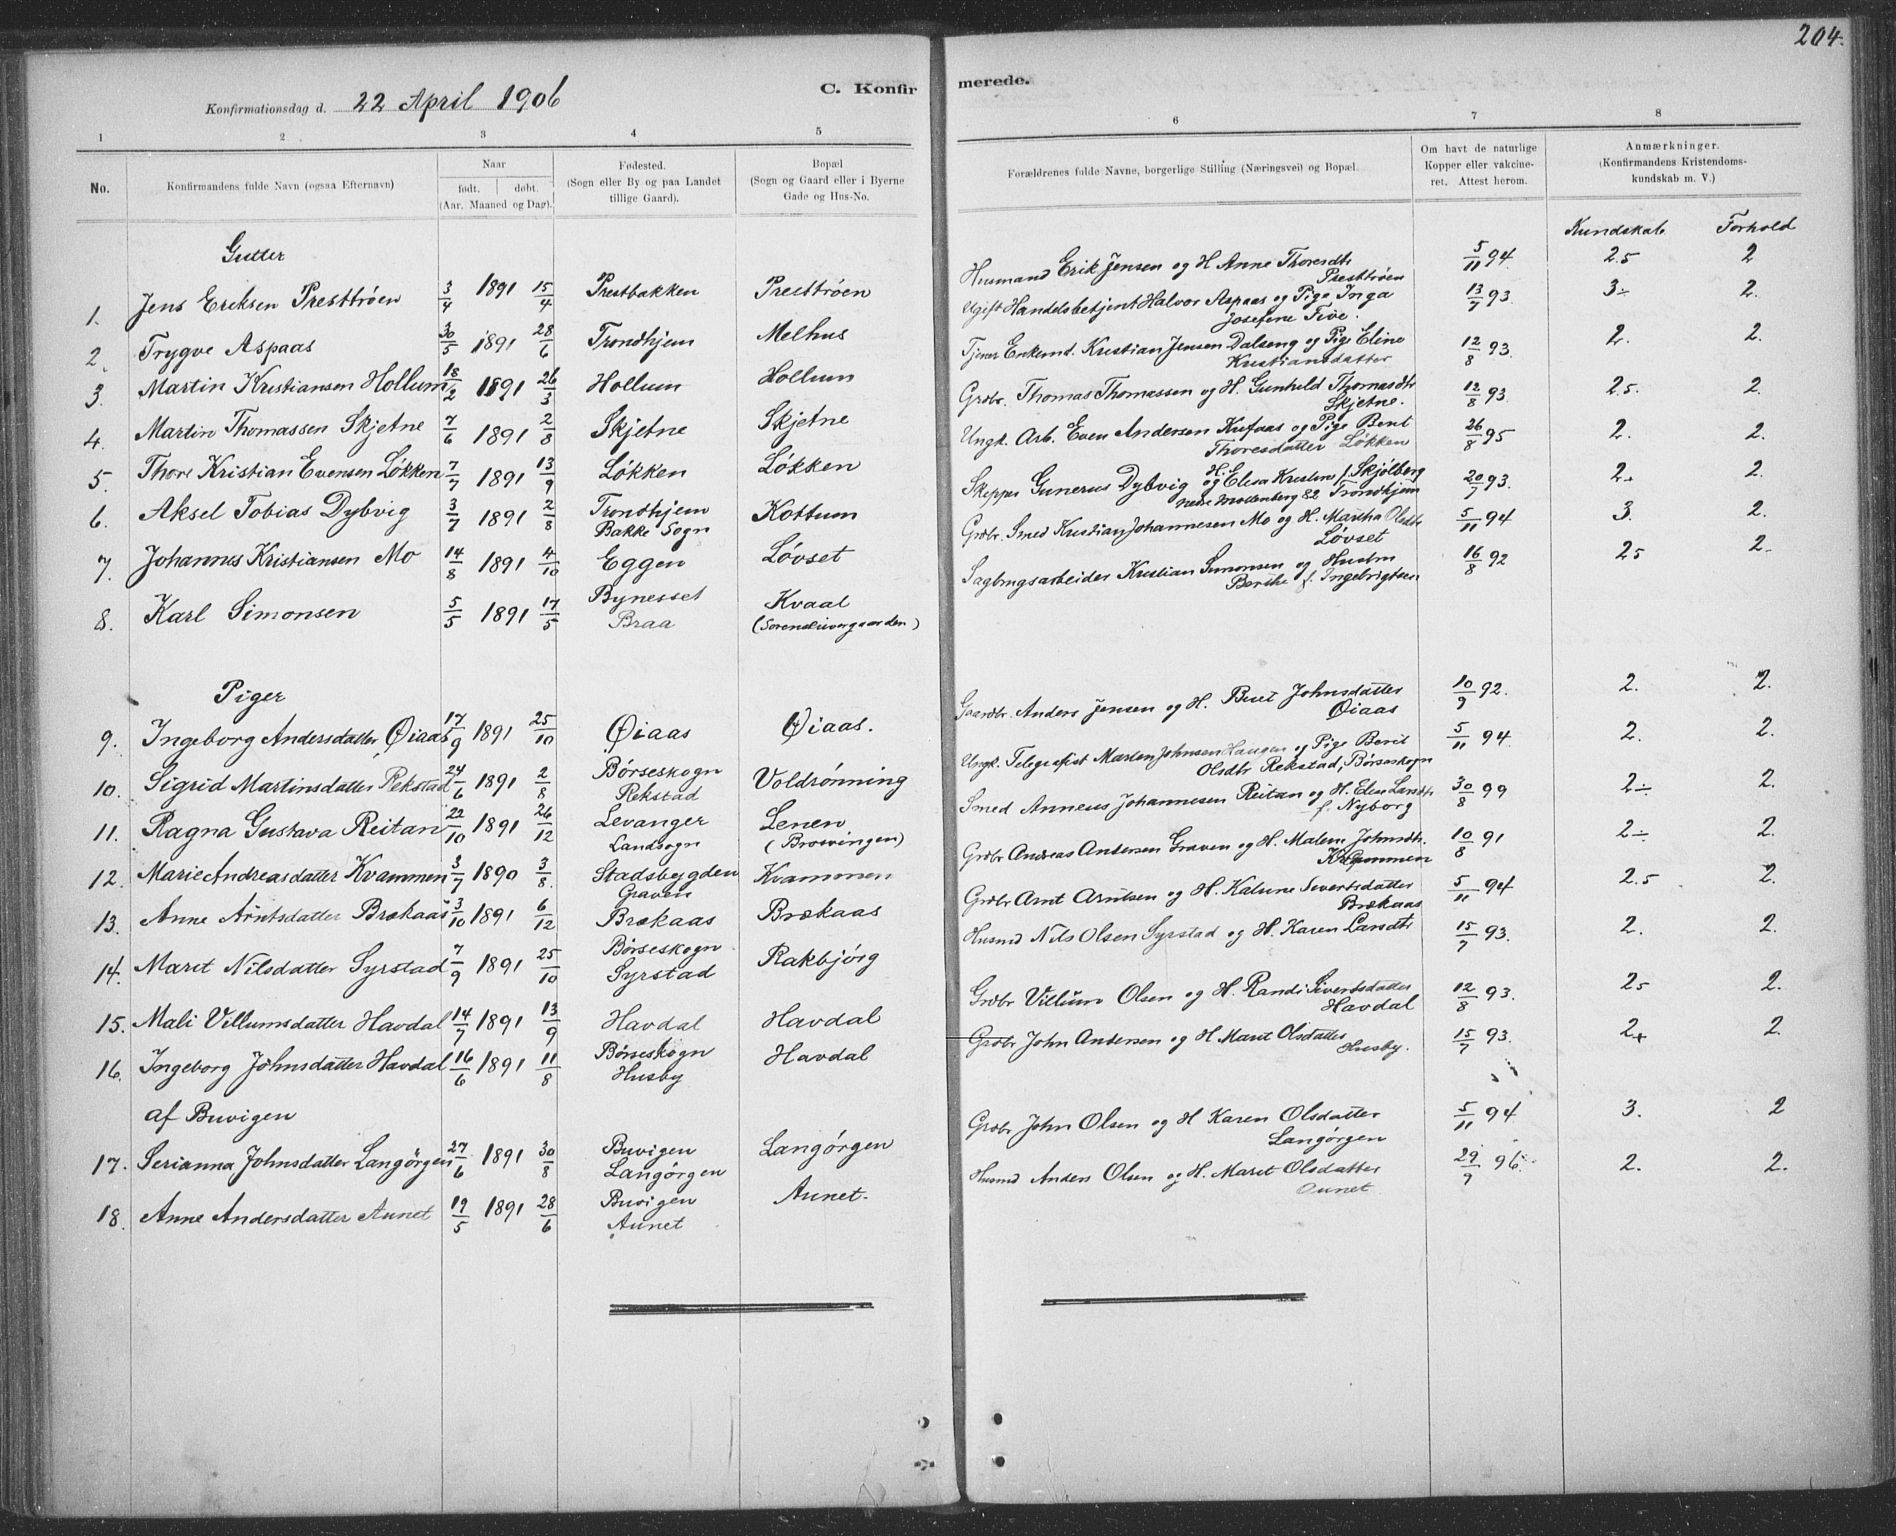 204.
Konfirmationsdag d. 22 April 1906
C. Konfirmerede.
1 2 3 4 5 6 7 8
No.
Konfirmandens fulde Navn (ogsaa Efternavn)
Naar
født. døbt.
(Aar. Maaned og Dag).
Fødested.
(Sogn eller By og paa Landet
tillige Gaard).
Bopæl
(Sogn og Gaard eller i Byerne
Gade og Hus-No.
Forældrenes fulde Navne, borgerlige Stilling (Næringsvei) og Bopæl.
Om havt de naturlige
Kopper eller vakcine-
ret. Attest herom.
Anmærkninger.
(Konfirmandens Kristendoms-
kundskab m. V.)
Kundskab Forhold
Gutter
1. Jens Eriksen Presttrøen 3/4 1891 15/4 Prestbakken Presttrøen Husmand Erik Jensen og H Anne Thoresdtr 5/11 94. 2.5 2
Presttrøen
2. Trygve Aspaas 30/5 1891 28/6 Trondhjem Melhus Ugift Handelsbetjent Halvor Aspaas og Pige Inga 13/7 93. 3÷ 2.
Josefine Five.
3. Martin Kristiansen Hollum 18/2 1891 26/3 Hollum Hollum Tjener Enkemd. Kristian Jensen Dalseng og Pige Eline 12/8 93. 2. 2.
Kristiansdatter
4. Martin Thomassen Skjetne 7/6 1891 2/8 Skjetne Skjetne Grdbr. Thomas Thomassen og H. Gunhild Thomasdtr 12/8 93. 2.5. 2.
Skjetne.
5. Thore Kristian Evensen Løkken 7/7 1891 13/9 Løkken Løkken Ungk. Arb. Even Andersen Kufaas og Pige Berit 26/8 95 2. 2.
Thoresdatter Løkken
6. Aksel Tobias Dybvig 3/7 1891 2/8 Trondhjem Kottum Skipper Gunerus Dybvig og H. Elisa Kristine f. Skjølberg 20/7 93. 2.+ 2.
Bakke Sogn nedre Møllenberg 82 Trondhjem
7. Johannes Kristiansen Mo 14/8 1891 4/10 Eggen Løvset Grdbr. Smed Kristian Johannesen Mo og H. Martha Olsdtr 5/11 94 3. 2.
Løvset
8. Karl Simonsen 5/5 1891 17/5 Bynesset Kvaal Sagbrugsarbeider Kristian Simonsen og Hustru 16/8 92 2.5 2.
Braa Berthe f. Ingebrigtsen
Piger
9. Ingeborg Andersdatter Øiaas 17/9 1891 25/10 Øiaas Øiaas. Gaardbr. Anders Jensen og H. Beret Johnsdatter 10/9 92. 2. 2.
Øiaas
10. Sigrid Martinsdatter Rekstad 24/6 1891 2/8 Børseskogn Voldrønning Ungk. Telegrafist Martin Johnsen Haugen og Pige Berit 5/11 94. 2. 2.
Rekstad Olsdtr Rekstad, Børseskogn
11. Ragna Gustava Reitan 22/10 1891 26/12 Levanger Lenen Smed Anneus Johannesen Reitan og H. Elen Larsdtr 30/8 99 2÷ 2.
Landsogn f. Nyborg
12. Marie Andreasdatter Kvammen 3/7 1890 3/8. Stadsbygden Kvammen Grdbr Andreas Andersen Graven og H. Malene Johnsdtr. 10/8 91 2÷ 2.
Graven Kvammen
13. Anne Arntsdatter Brekaas 3/10 1891 6/12 Brekaas Brekaas Grdbr Arnt Arntsen og H. Katrine Sivertsdatter 5/11 94 2.5 2.
Brekaas
14. Marit Nilsdatter Syrstad 7/9 1891 25/10 Børseskogn Rakbjørg Husmd Nils Olsen Syrstad og H. Karen Larsdtr 15/7 93. 2. 2.
Syrstad
15. Mali Villumsdatter Havdal 14/7 1891 13/9 Havdal Havdal Grdbr Villum Olsen og H. Randi Sivertsdatter 12/8 93. 2.5 2.
Havdal
16. Ingeborg Johnsdatter Havdal 16/6 1891 11/8 Børseskogn Havdal Grdbr John Andersen og H Marit Olsdatter 15/7 93. 2+ 2.
Husby Husby.
af Buvigen
17. Serianna Johnsdatter Langørgen 27/6 1891 30/8 Buvigen Langørgen Grdbr John Olsen og H Karen Olsdatter 5/11 94 3. 2
Langørgen Langørgen
18. Anne Andersdatter Aunet 19/5 1891 28/6 Buvigen Aunet. Husmd Anders Olsen og H. Marit Olsdatter 29/9 96. 2. 2.
Aunet Aunet